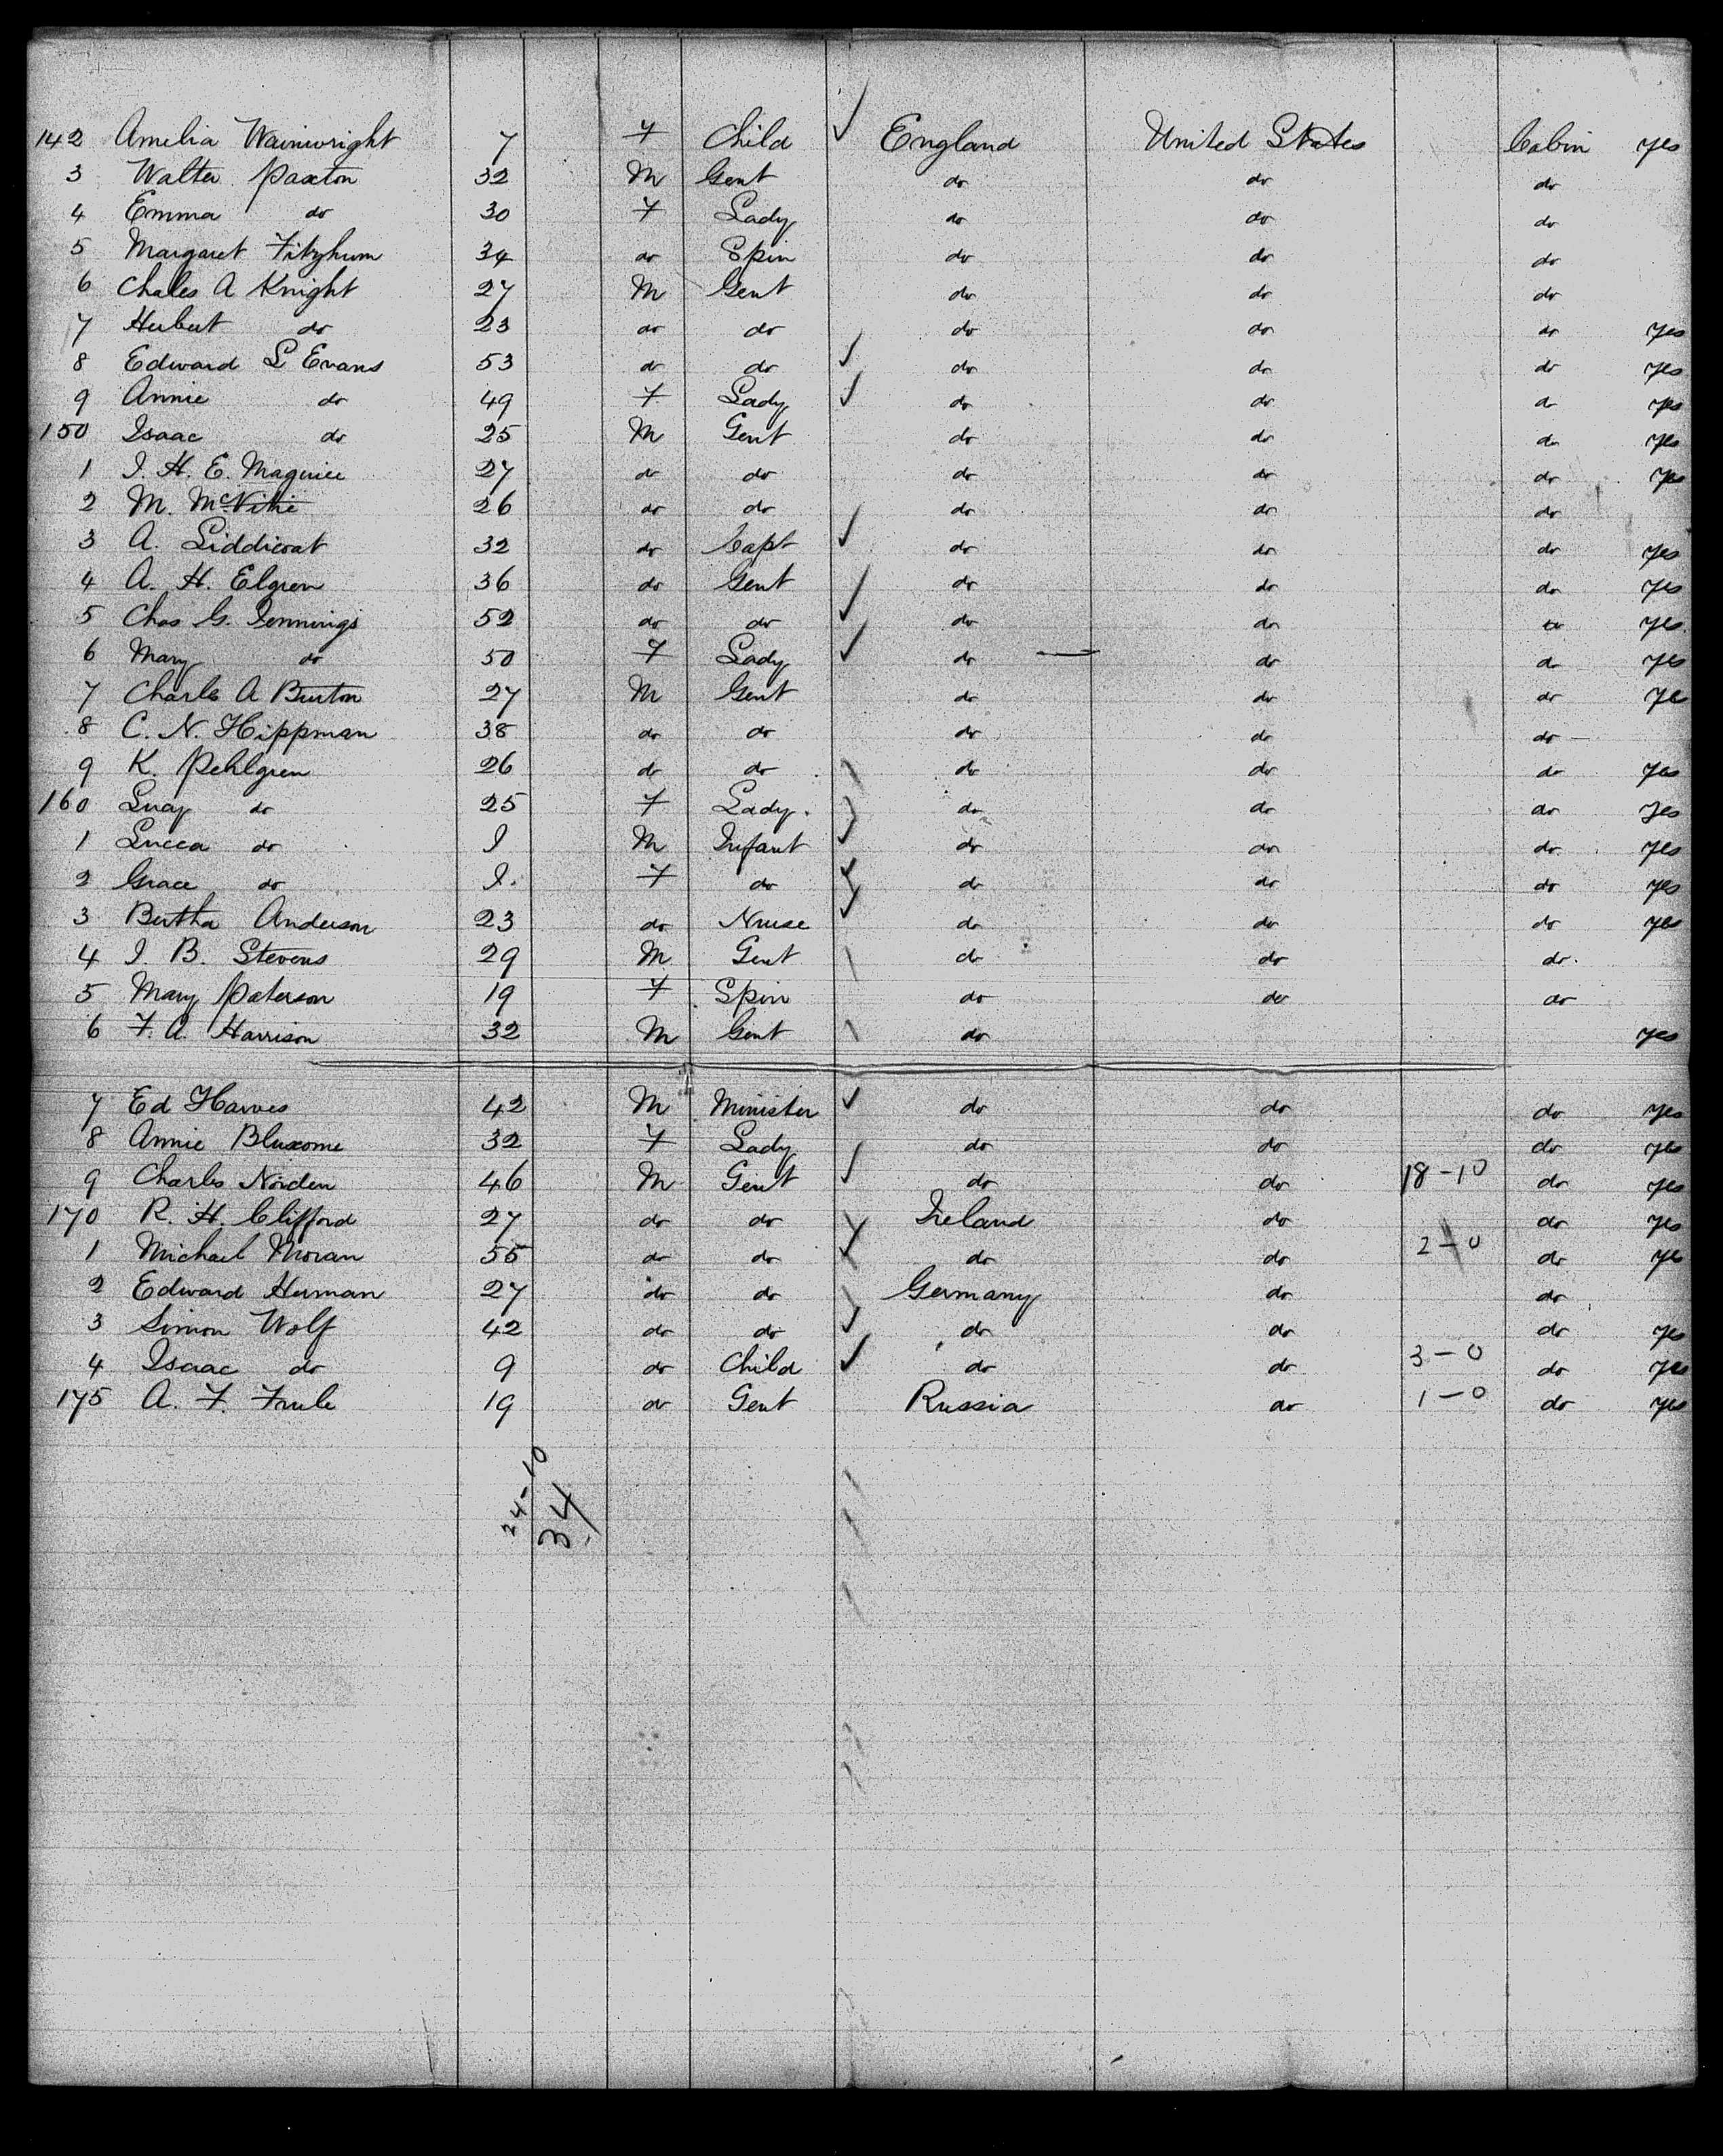 142 Amelia Wainwright 7 F Child England United States Cabin yes
3 Walter Paxton 32 M Gent do do do
4 Emma do 30 F Lady do do do
5 Margaret 34 do Spin do do do
6 Chales A Knight 27 M Gent do do do
7 Herbert do 23 do do do do do yes
8 Edward L Evans 53 do do do do do yes
9 Annie do 49 F Lady do do do yes
150 Isaac do 25 M Gent do do do yes
1 J. H. E. Maguire 27 do do do do do yes
2 M. McVitie 26 do do do do do
3 A. Liddicoat 32 do Capt do do do yes
4 A. H. Elgren 36 do Gent do do do yes
5 Chas G. Jennings 52 do do do do do yes
6 Mary do 50 F Lady do do do yes
7 Charls A Burton 27 M Gent do do do ye
8 C. N. Hippman 38 do do do do do
9 K. Pehlgren 26 do do do do do yes
160 Lucy do 25 F Lady. do do do yes
1 Lucca do I M Infant do do do yes
2 Grace do I. F do do do do yes
3 Bertha Anderson 23 do Nurse do do do yes
4 J. B. Stevens 29 M Gent do do do.
5 Mary Paterson 19 F Spin do do do
6 F. A. Harrison 32 M Gent do yes
7 Ed Harves 42 M Minister do do do yes
8 Annie Bluxome 32 F Lady do do do yes
9 Charles Norden 46 M Gent do do 18-10 do yes
170 R. H. Clifford 27 do do Ireland do do yes
1 Michael Moran 55 do do do do 2-0 do ye
2 Edward Herman 27 do do Germany do do
3 Simon Wolf 42 do do do do do yes
4 Isaac do 9 do Child do do 3-0 do yes
175 A. F. 19 do Gent Russia do 1-0 do yes
24-10
34